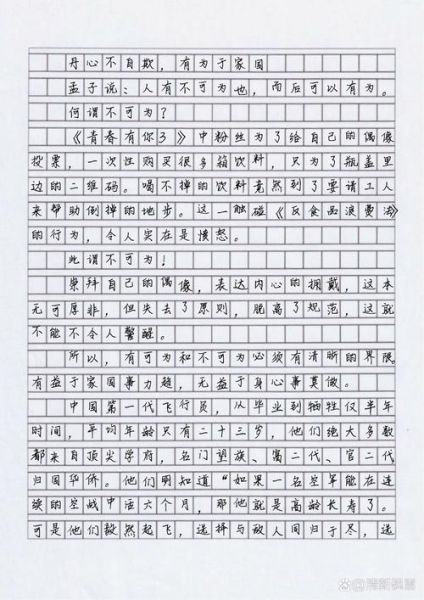 丹心不自欺，有为于家国
孟子说：人有不可为也，而后可以有为。
何谓不可为？
《青春有你3》中粉丝为了给自己的偶像
投票，一次性购买很多箱饮料，只为了瓶盖里
边的二维码。喝不掉的饮料竟然到了要请工人
来帮助倒掉的地步。这一触碰《反食品浪费法》
的行为，令人实在是愤怒。
此谓不可为！
崇拜自己的偶像，表达内心的拥戴，这本
无可厚非，但失去了原则，脱离了规范，这就
不能不令人警醒。
所以，有可为和不可为必须有清晰的界限。
有益于家国事力趋，无益于身心事莫做。
中国第一代飞行员，从毕业到牺牲仅半年
时间，平均年龄只有二十三岁，他们绝大多数
都来自顶尖学府，名门望族、富二代、官二代
归国华侨。他们明知道“如果一名空军能在连
续的空战中活六个月，那他就是高龄长寿了。
可是他们毅然起飞，选择与敌人同归于尽，选